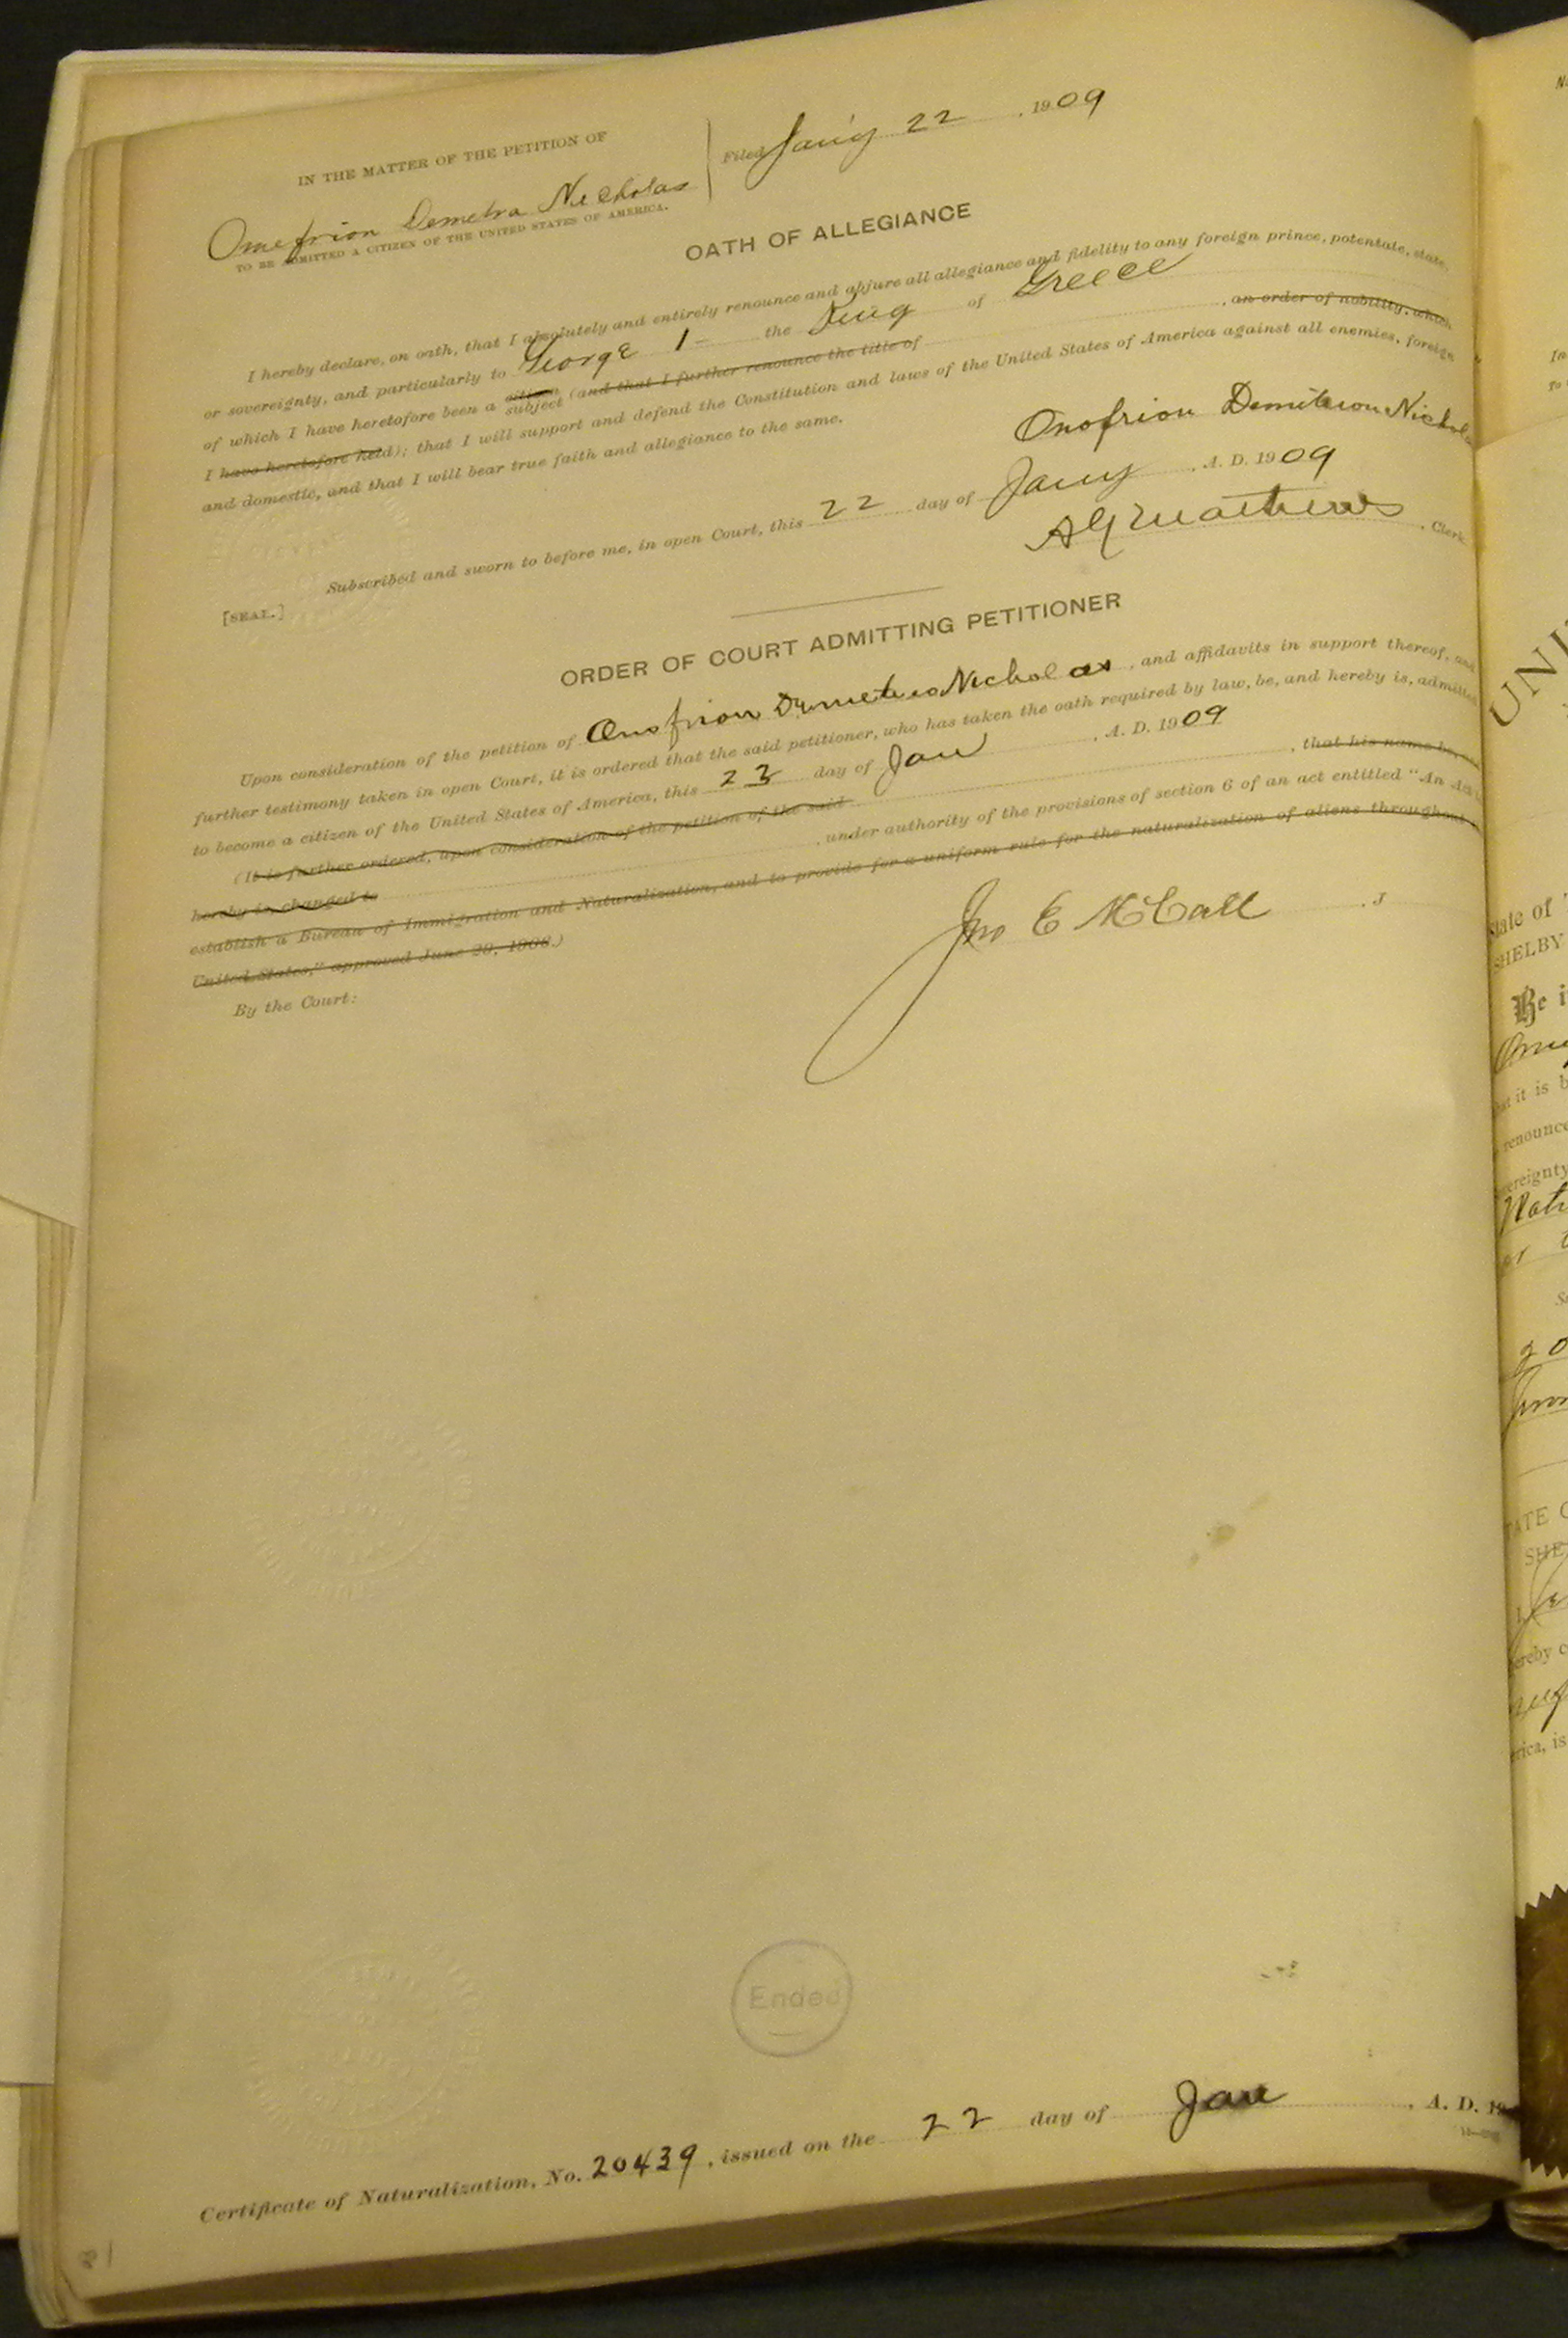 IN THE MATTER OF THE PETITION OF
Omefrion Demetra Nicholas
TO BE ADMITTED A CITIZEN OF THE UNITED STATES OF AMERICA.
Filed Jany 22, 1909
OATH OF ALLEGIANCE
I hereby declare, on oath, that I absolutely and entirely renounce and abjure all allegiance and fidelity to any foreign prince, potentate, state,
or sovereignty, and particularly to George 1 - the King of Greece
of which I have heretofore been a citizen subject (and that I further renounce the title of , an order of nobility, which
I have heretofore held); that I will support and defend the Constitution and laws of the United States of America against all enemies, foreign
and domestic, and that I will bear true faith and allegiance to the same.
Onofrion Demitrion Nichola
Subscribed and sworn to before me, in open Court, this 22 day of Jany, A. D. 1909
[SEAL.]
A G Matthews, Clerk
ORDER OF COURT ADMITTING PETITIONER
Upon consideration of the petition of Onofrion Demetrio Nicholas, and affidavits in support thereof, and
further testimony taken in open Court, it is ordered that the said petitioner, who has taken the oath required by law, be, and hereby is, admitted
to become a citizen of the United States of America, this 23 day of Jan, A. D. 1909
(It is further ordered, upon consideration of the petition of the said , that his name be,
hereby is, changed to , under authority of the provisions of section 6 of an act entitled "An Act
establish a Bureau of Immigration and Naturalization, and to provide for a uniform rule for the naturalization of aliens throughout
United States," approved June 29, 1906.)
By the Court:
Jno E McCall, J
Ended
Certificate of Naturalization, No. 20439, issued on the 22 day of Jan, A. D. 19
UNI
State of
SHELBY
Be i
it is b
renounce
ereignty
Nat
or
20
TATE O
SHE
ereby c
rica, is